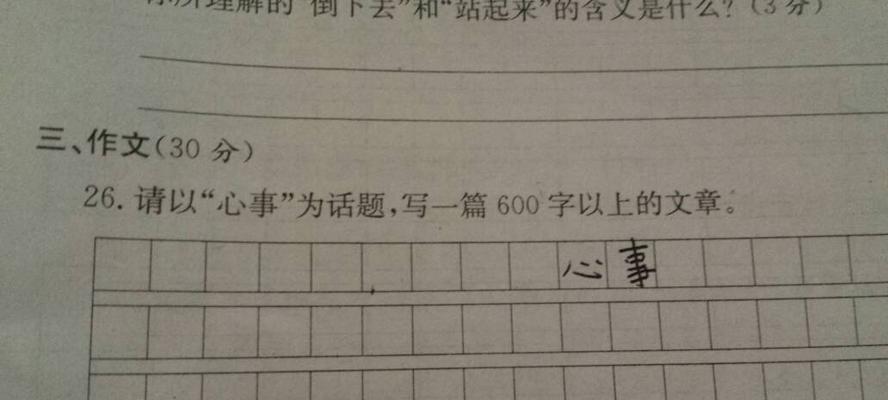 理解的“倒下去”和“站起来”的含义是什么？（3分）
三、作文（30分）
26.请以“心事”为话题，写一篇600字以上的文章。
心事